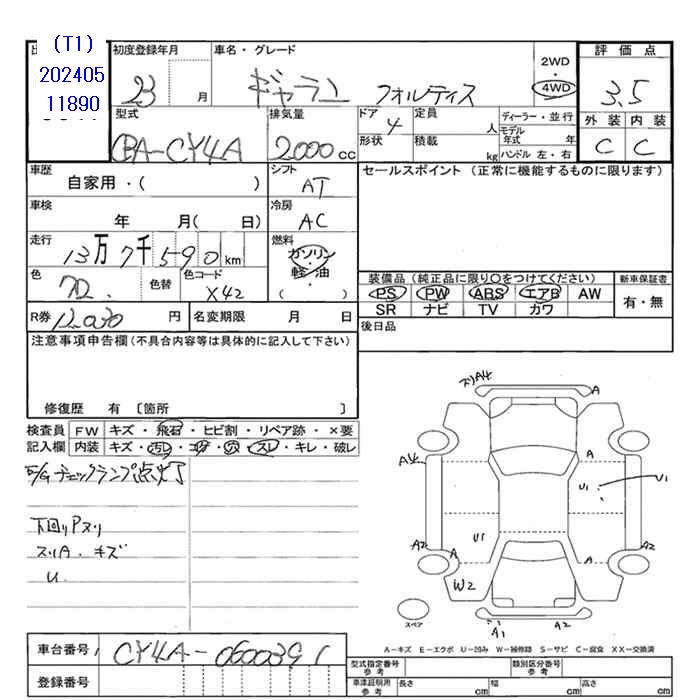 (T1)
202405
11890
初度登録年月
23 月
車名・グレード
ギャラン フォルティス
2WD
4WD
評価点
3.5
外装 内装
C C
型式
CBA-CY4A
排気量
2000 cc
ドア
4
形状
定員
人
積載
kg
ディーラー・並行
モデル年式 年
ハンドル 左・右
車歴
自家用・( )
シフト
AT
セールスポイント (正常に機能するものに限ります)
車検
年 月( 日)
冷房
AC
走行
13万7千590km
燃料
ガソリン
軽・油
( )
色
色替
色コード
X42
装備品(純正品に限り○をつけてください)
PS PW ABS エアB AW
SR ナビ TV カワ
新車保証書
有・無
R券 12,030 円
名変期限 月 日
後日品
注意事項申告欄(不具合内容等は具体的に記入して下さい)
修復歴 有 〔箇所 〕
検査員
記入欄
FW キズ・飛石・ヒビ割・リペア跡・×要
内装 キズ・汚レ・コゲ・穴・スレ・キレ・破レ
E/Gチェックランプ点灯
下回りPスリ
スリA・キズ
U
スリA4 A
A4 A
U1 U1
A2 A U1 A A2
W2
スペア
A1 A2
A-キズ E-エクボ U-凹み W-補修跡 S-サビ C-腐食 XX-交換済
車台番号
CY4A-0600391
登録番号
型式指定番号 参考
類別区分番号 参考
車庫証明用 参考
長さ cm
幅 cm
高さ cm